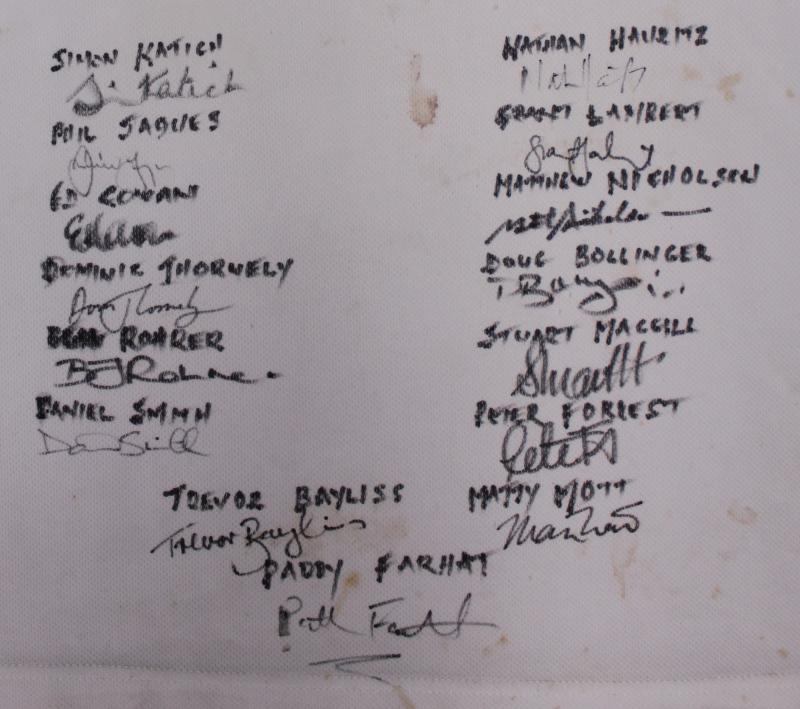 SIMON KATICH
Si Katich
PHIL JAQUES
ED COWAN
Ed Cowan
DOMINIC THORNELY
Dom Thornely
ROHRER
BJ Rohrer
DANIEL SMITH
Dan Smith
NATHAN HAURITZ
GRANT LAMBERT
MATTHEW NICHOLSEN
DOUG BOLLINGER
STUART MACGILL
Stuart
PETER FORREST
Peter
TREVOR BAYLISS
Trevor Bayliss
MATTY MOTT
PADDY FARHAT